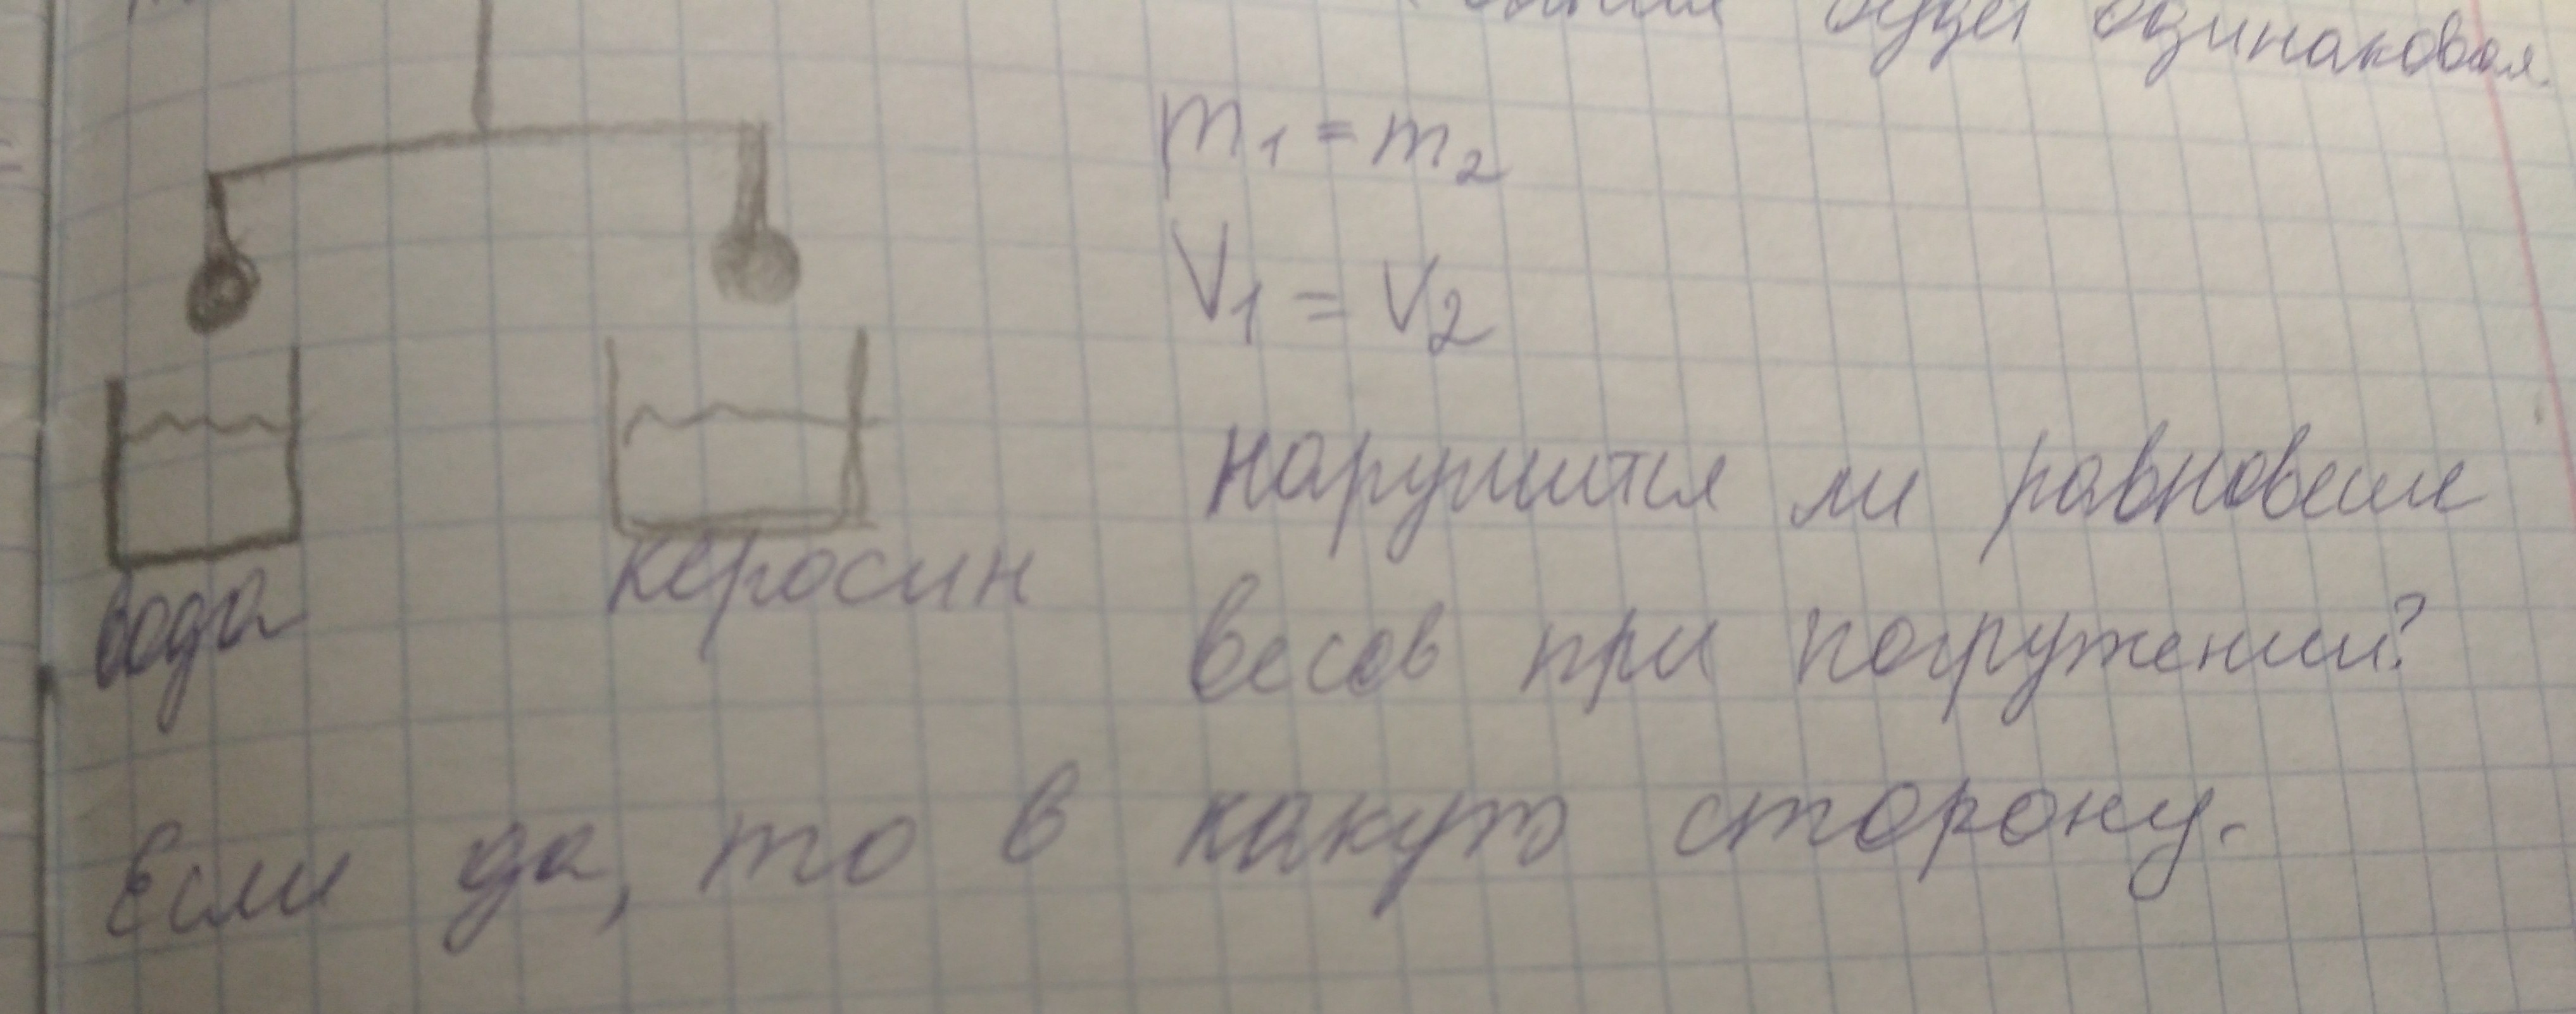 будет одинаковая.
m₁ = m₂
V₁ = V₂
вода
керосин
нарушится ли равновесие
весов при погружении?
Если да, то в какую сторону.